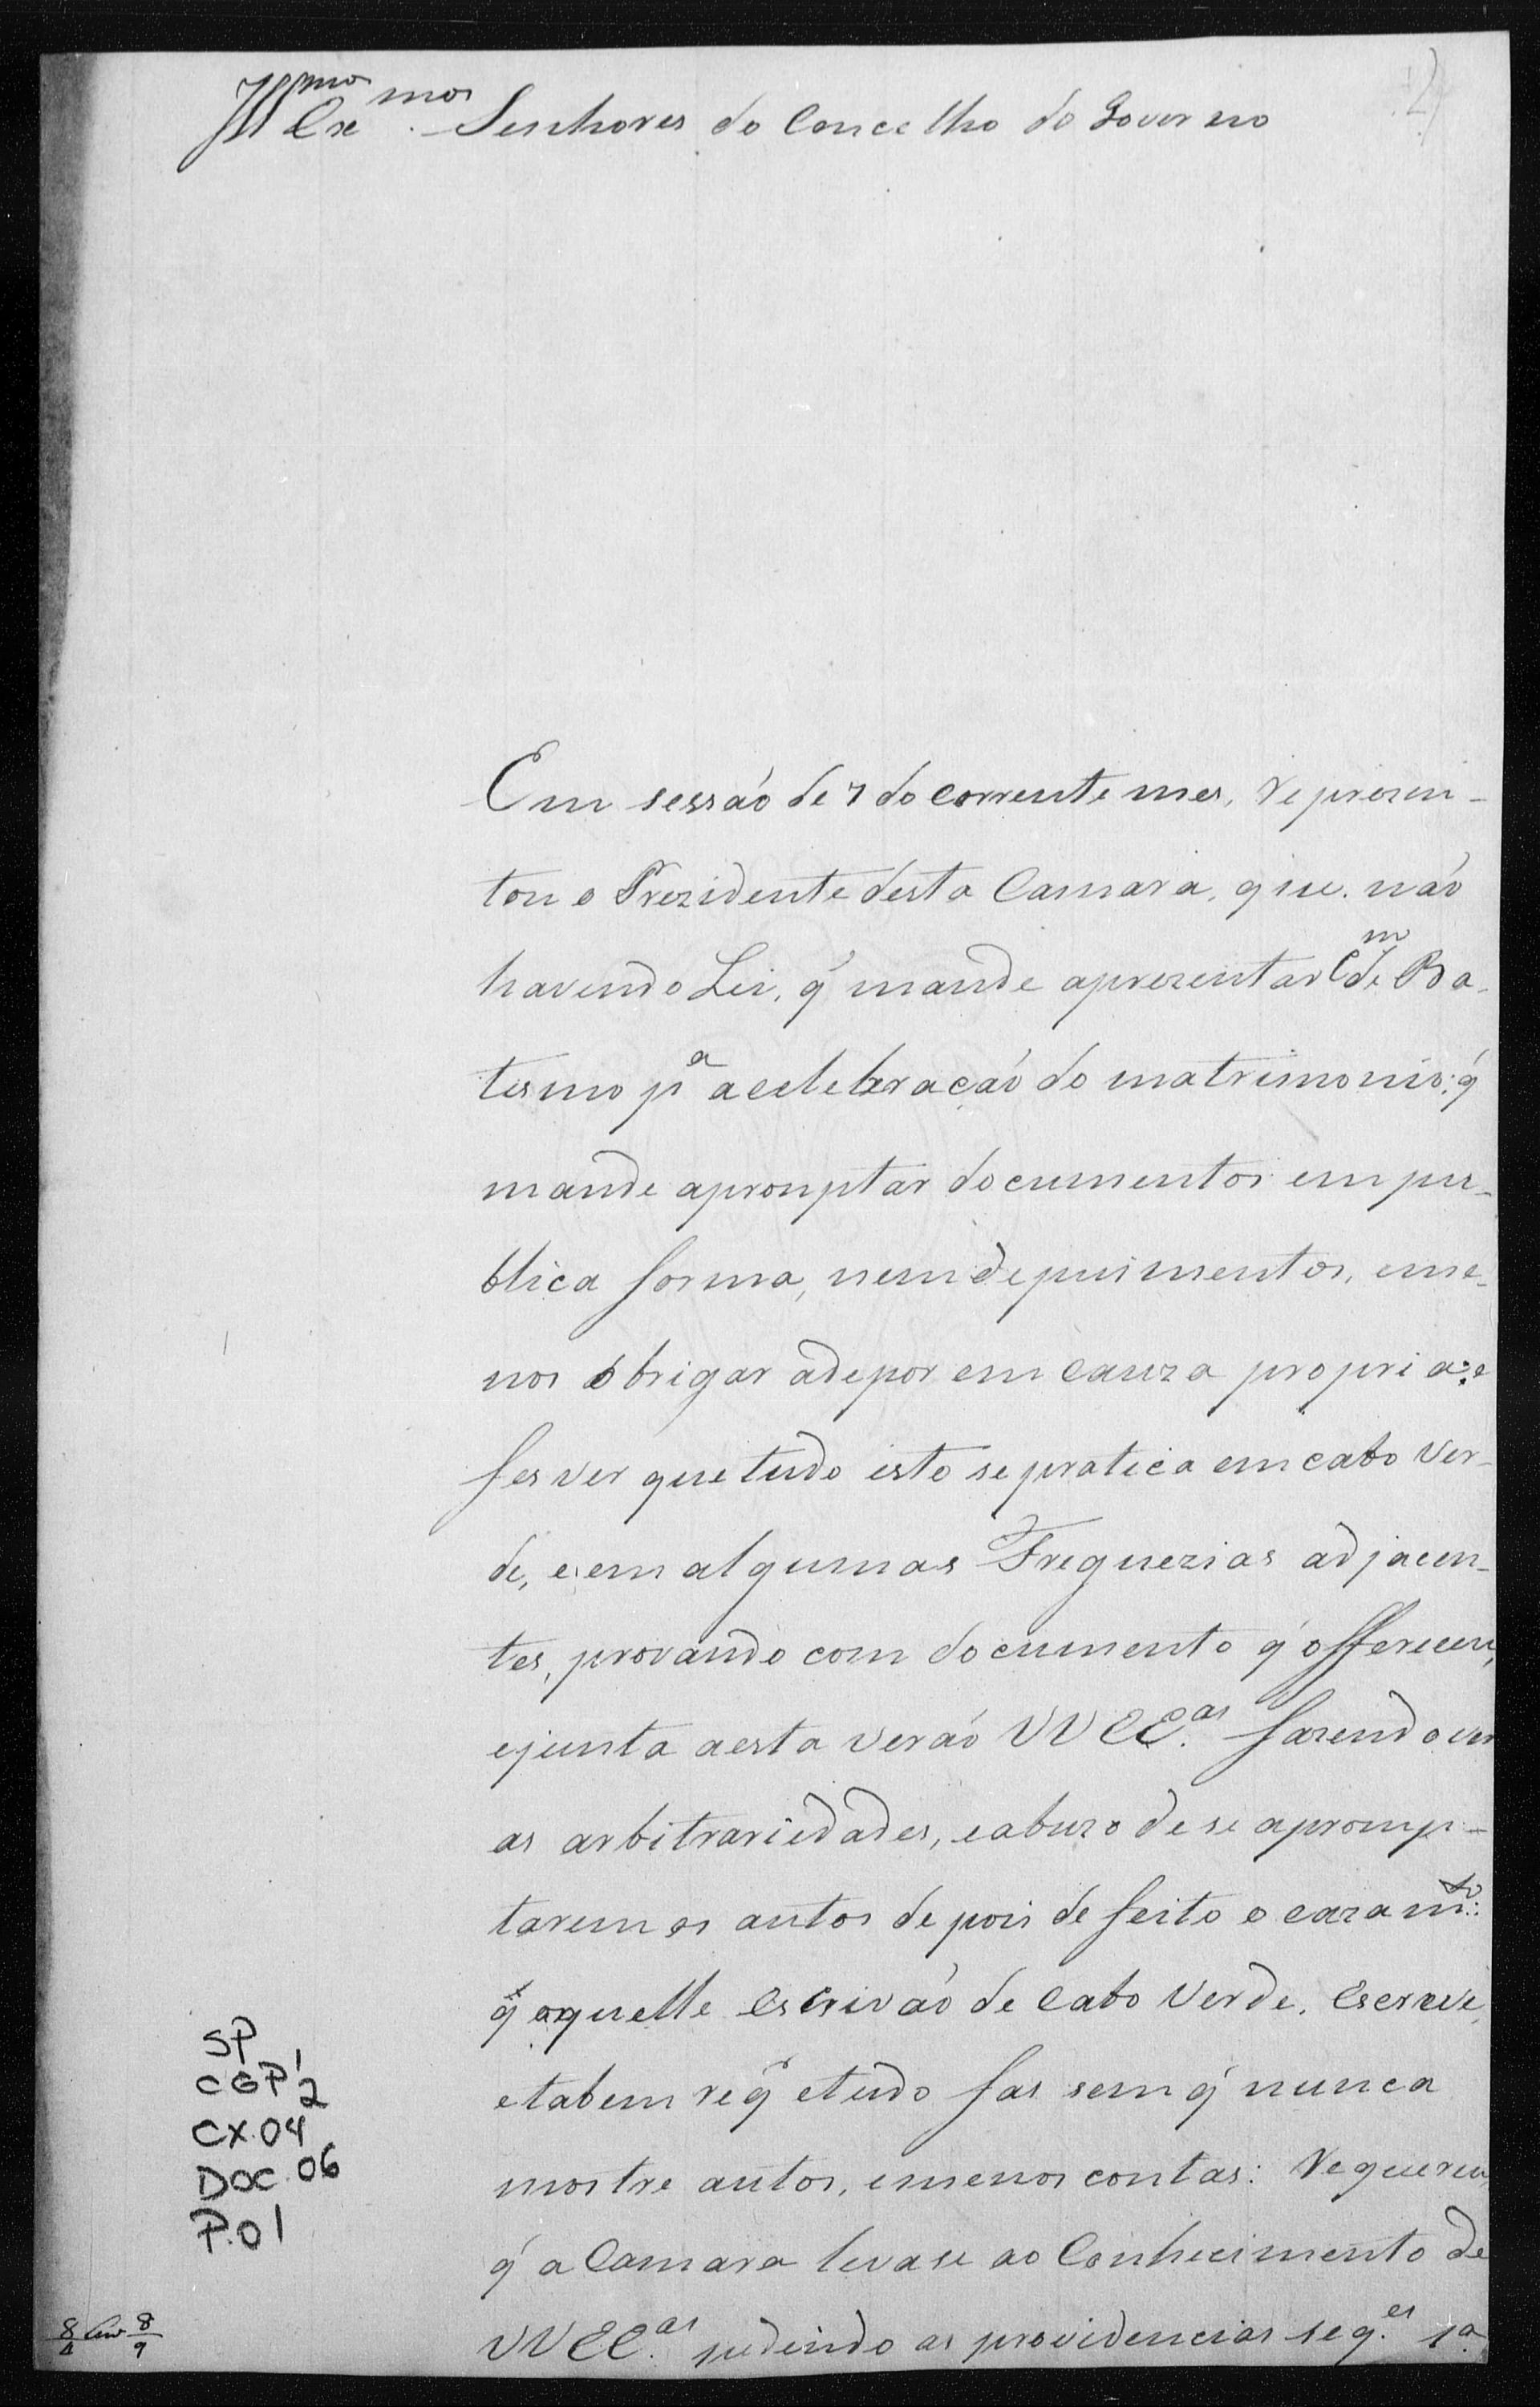 Ill^mos Ex^mos. Senhores do Concelho do Governo
Em sessaõ de 7 do corrente mes, reprezen-
tou o Prezidente desta Camara, que naõ
havendo Lei, q̃ mande aprezentar C^m de Ba-
tismo p^a a celebraçaõ do matrimonio: q̃
mande apromptar documentos em pu-
blica forma, nem depuimentos, e me-
nos obrigar a depor em cauza propria: e
fes ver que tudo isto se pratica em cabo Ver-
de, e em algumas Freguezias adjacen-
tes, provando com documento q̃ offereceu,
e junta a esta veraõ VVEE.^as fazendo ver
as arbitrariedades, e abuzo de se apromp-
tarem os autos depois de feito o cazam^to:
q̃ aquelle Escrivaõ de Cabo Verde, Escreve,
e tabem req^r e tudo fas sem q̃ nunca
mostre autos, e menos contas: Requereu,
q̃ a Camara levase ao Conhecimento de
VVEE.^as pedindo as providencias seg.^es 1ª
SP
CGP1
2
CX.04
DOC.06
P.01